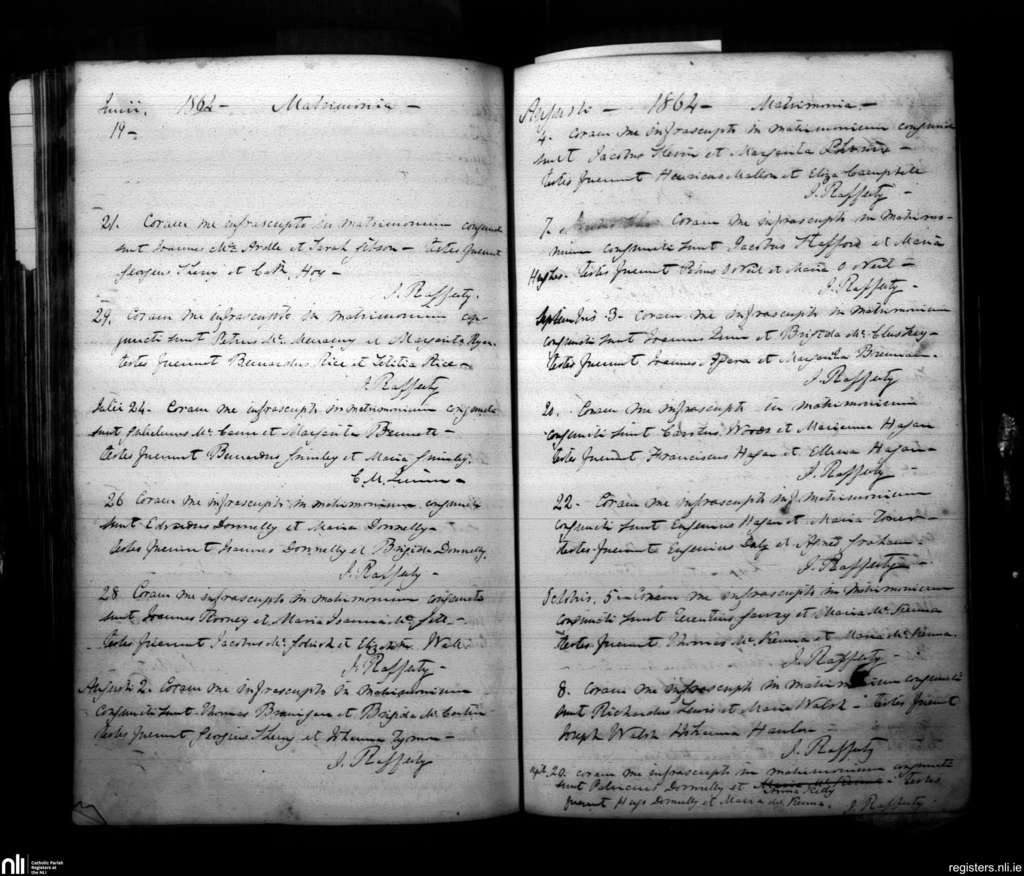 Junii. 1864 – Matrimonia –
19 –
21. Coram me infrascripto in matrimonium conjuncti
sunt Joannes Mc Ardle et Sarah Gibson – testes fuerunt
Georgius Sherry et Cath. Hoy –
J. Rafferty.
29. Coram me infrascripto in matrimonium con-
juncti sunt Petrus Mc et Margarita Ryan
testes fuerunt Bernardus Rice et Letitia Rice –
J. Rafferty
Julii 24. Coram me infrascripto in matrimonium conjuncti
sunt Mc Cann et Margarita Bennett –
testes fuerunt Bernardus Grimley et Maria Grimley.
C. M. Quinn –
26 Coram me infrascripto in matrimonium conjuncti
sunt Donnelly et Maria Donnelly –
testes fuerunt Joannes Donnelly et Brigida Donnelly.
J. Rafferty –
28. Coram me infrascripto in matrimonium conjuncti
sunt Joannes Rooney et Maria Joanna Mc –
testes fuerunt Jacobus Mc et Elizabeth
J. Rafferty –
Augusti 2. Coram me infrascripto in matrimonium
conjuncti sunt Thomas Branigan et Brigida Mc
testes fuerunt Georgius Sherry et –
J. Rafferty
Augusti – 1864 – Matrimonia –
4. Coram me infrascripto in matrimonium conjuncti
sunt Jacobus et Margarita –
testes fuerunt Henricus Mallon et Eliza Campbell
J. Rafferty –
7. Coram me infrascripto in matrimo-
nium conjuncti sunt Jacobus Stafford et Maria
Hughes. testes fuerunt Petrus O Neil et Maria O Neil –
J. Rafferty –
Septembris 3 – coram me infrascripto in matrimonium
conjuncti sunt Joannes Quin et Brigida Mc Cluskey –
testes fuerunt Joannes et Margarita Brennan –
J. Rafferty
20. Coram me infrascripto in matrimonium
conjuncti sunt Woods et Marianna Hagan
testes fuerunt Franciscus Hagan et Ellena Hagan –
J. Rafferty
22. Coram me infrascripto in matrimonium
conjuncti sunt Eugenius Hagan et Maria Toner –
testes fuerunt Eugenius Daly et Agnes Graham –
J. Rafferty –
Octobris. 5 – Coram me infrascripto in matrimonium
conjuncti sunt Terentius et Maria Mc Kenna
testes fuerunt Thomas Mc Kenna et Maria Mc Kenna.
J. Rafferty –
8. Coram me infrascripto in matrimonium conjuncti
sunt Richardus Lewis et Maria Walsh – testes fuerunt
Joseph Walsh Johanna Hanlon –
J. Rafferty
20. coram me infrascripto in matrimonium conjuncti
sunt Patricius Donnelly et Maria Mc Kenna Anna Kelly – testes
fuerunt Hugo Donnelly et Maria Mc Kenna. J. Rafferty
nli Catholic Parish
Registers at
the NLI
registers.nli.ie